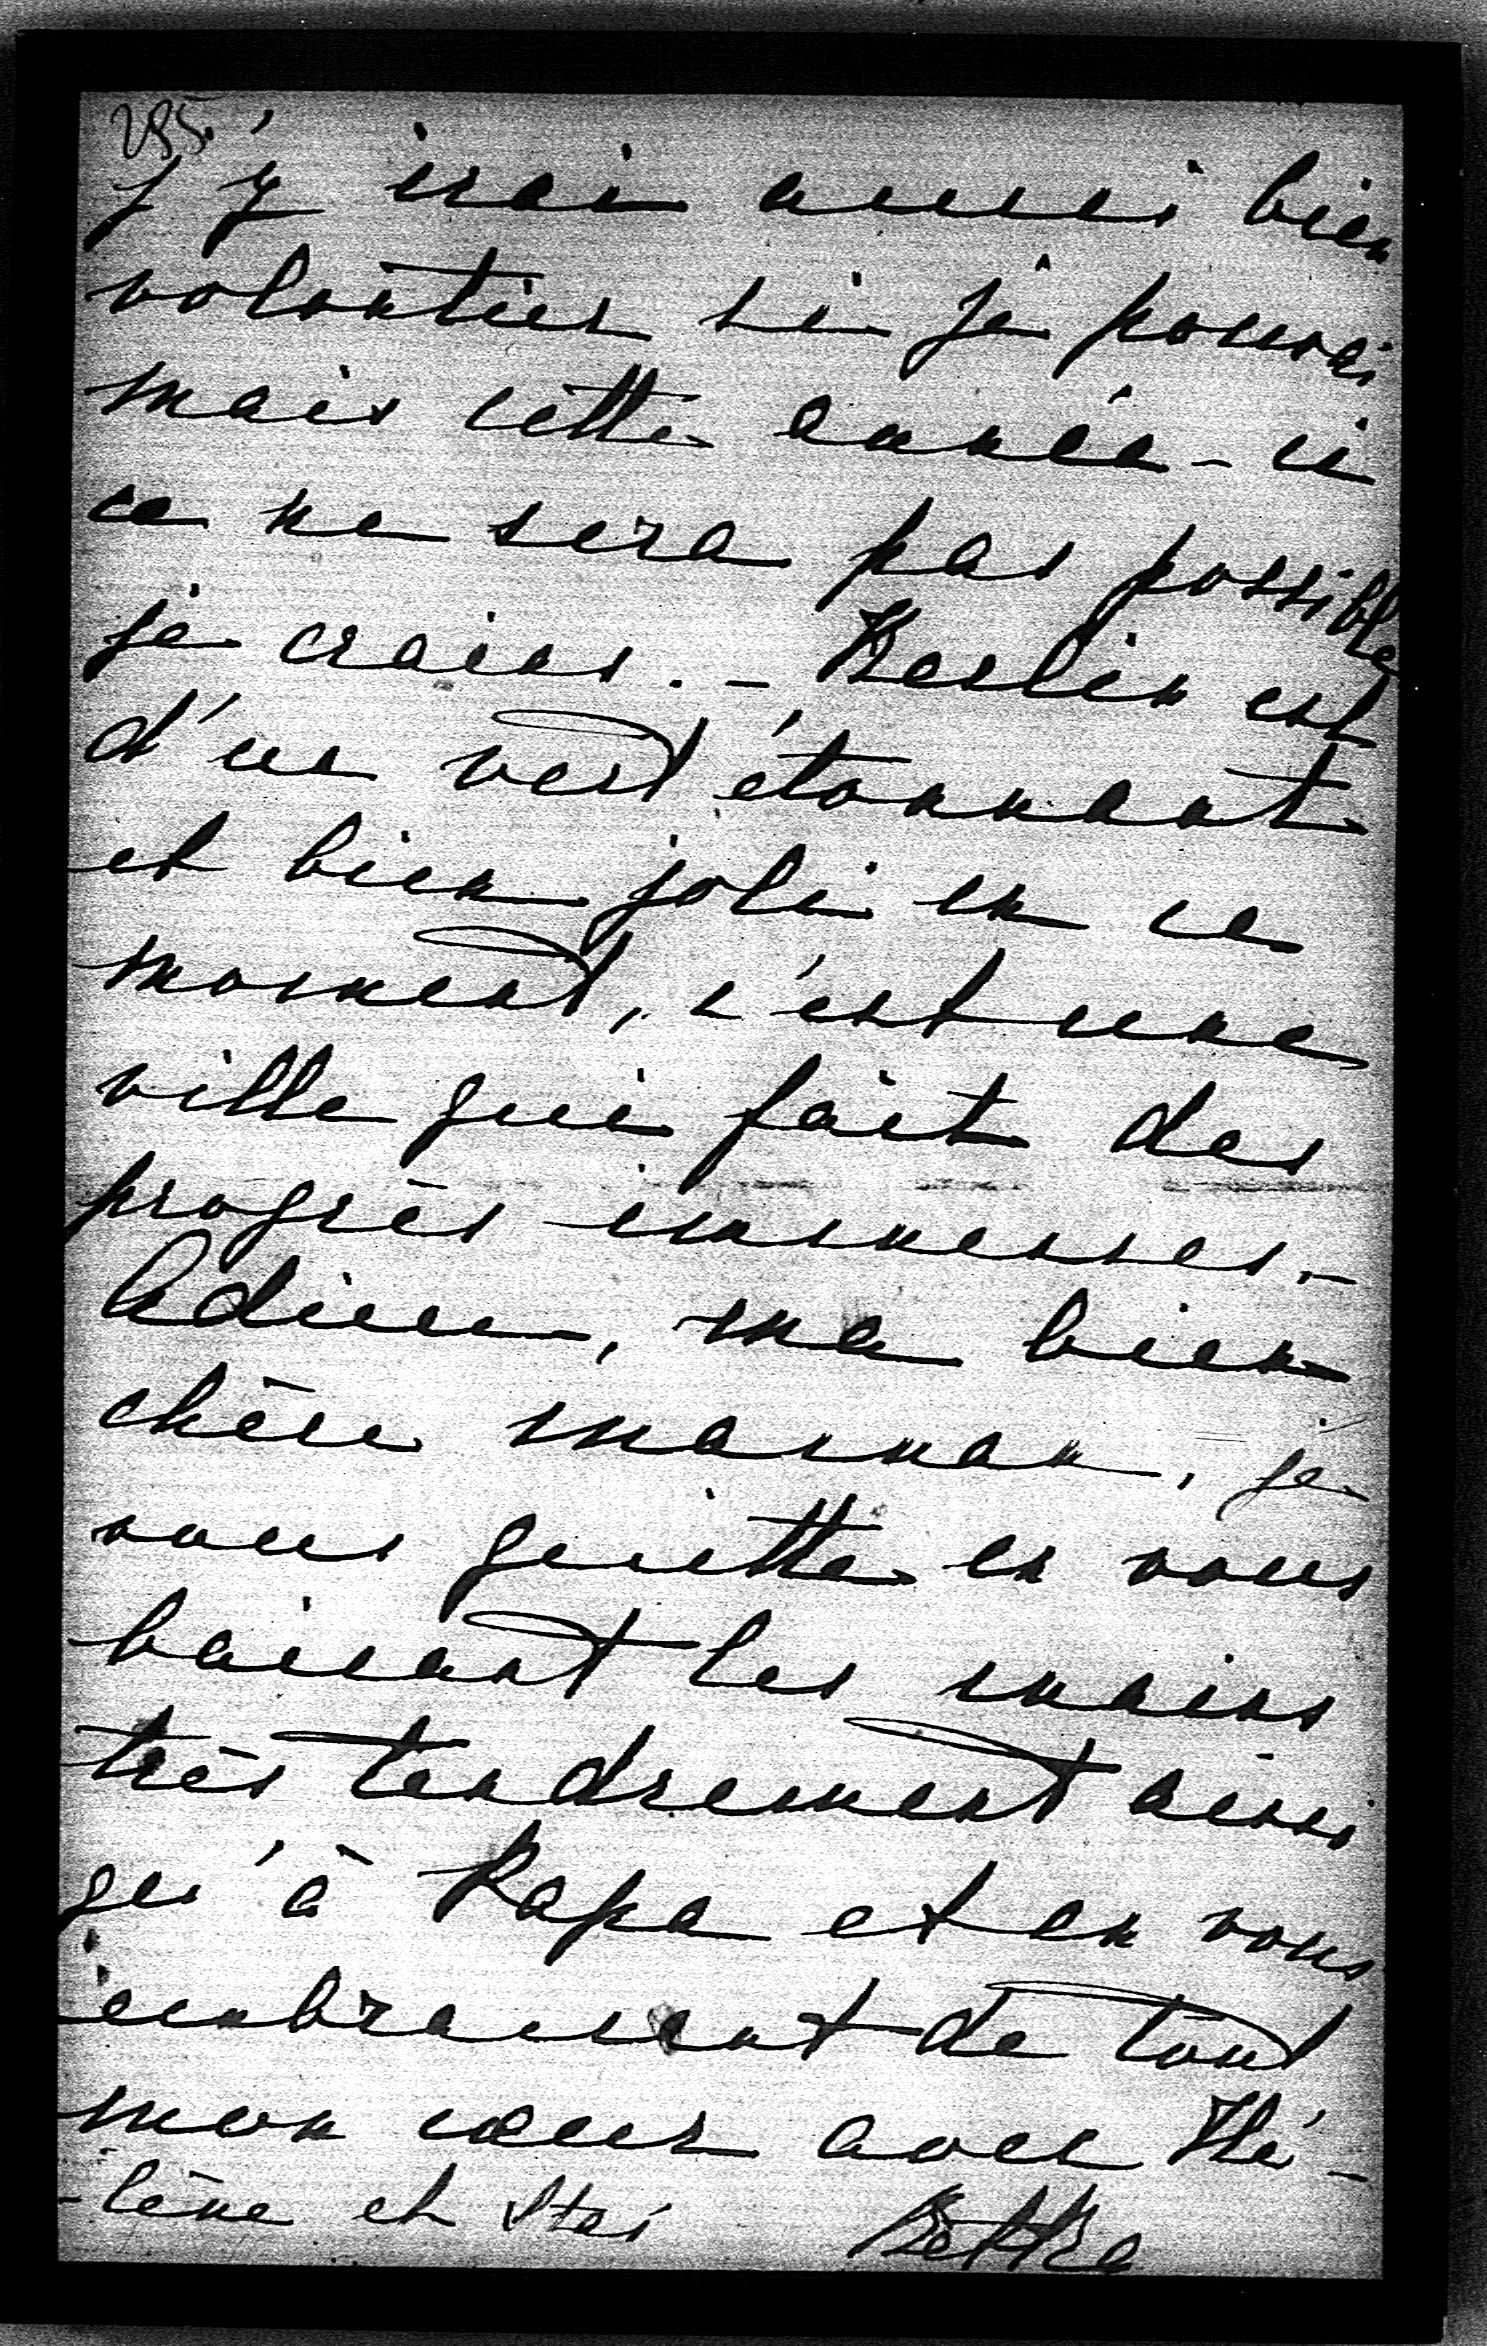 285.
J'y irai aussi bien
volontier si je pouvai
mais cette année-ci
ce ne sera pas possible
je crains. - Berlin est
d'un vert étonnant
et bien joli en ce
moment, c'est une
ville qui fait des
progrès immenses. -
Adieu, ma bien
chère maman, je
vous quitte en vous
baisant les mains
très tendrement ainsi
qu'à Papa et en vous
embrassant de tout
mon cœur avec Hé-
-lène et Stas Betka